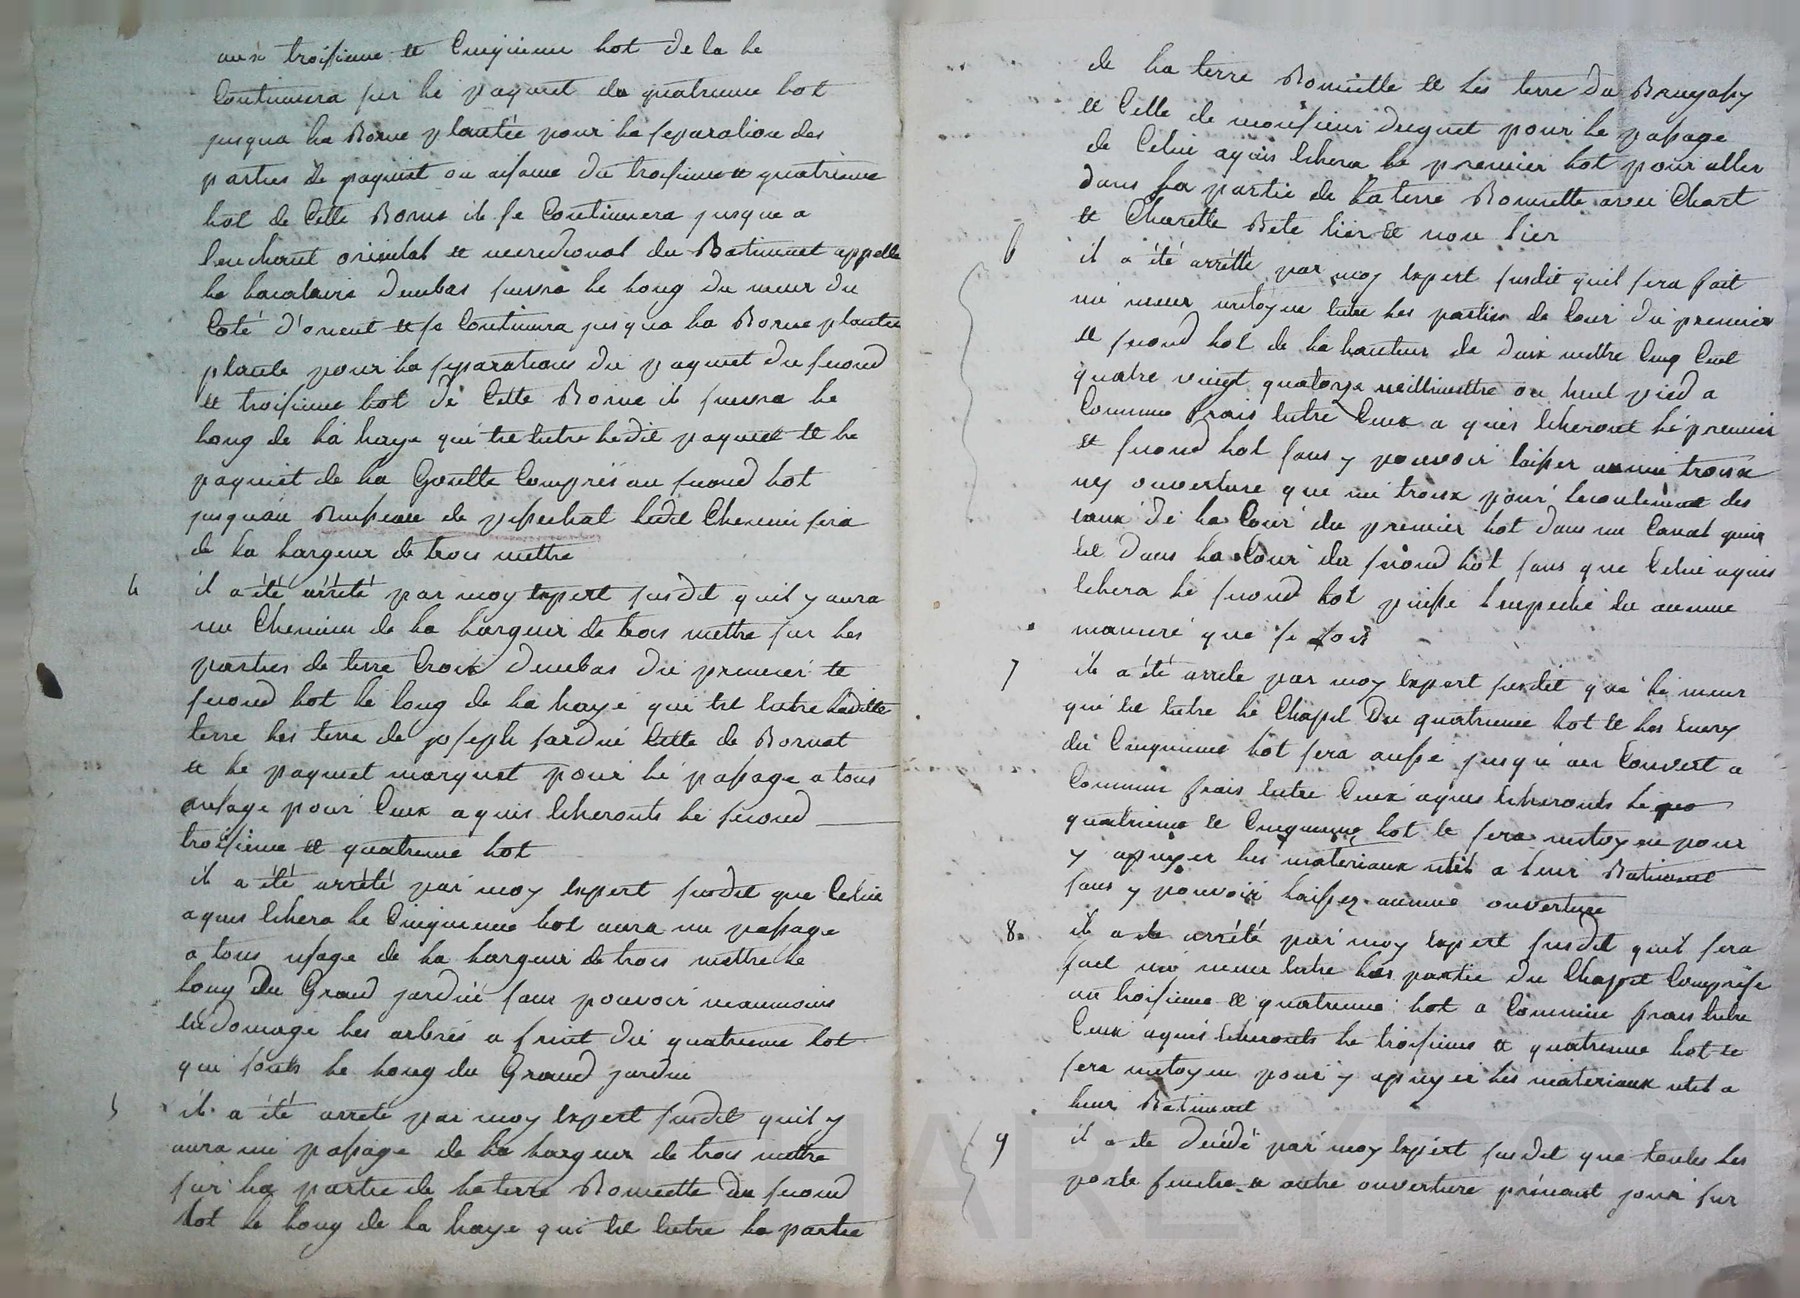 aux troisieme et Cinquieme lot de la le
Continuera sur le paquet du quatrieme lot
jusqua la Borne plantée pour la separation des
parties de paquet ou aisame du troisieme et quatrieme
lot de Cette Borne il se Continuera jusque a
lenchant oriental et meredional du Batiment appelle
le dembas suivra le long du meur du
Coté d'orient et se Continura jusqua la Borne plantée
plante pour la separations du paquet du second
et troisieme lot de Cette Borne il suivra le
long de la haye qui est Entre ledit paquet et le
paquet de la Goutte Compris au second lot
jusquau Ruisseau de ledit Chemin sera
de la largeur de trois mettre
4 il a été arrété par moy Expert susdit quil y aura
un Chemin de la largeur de trois mettre sur les
parties de terre Croix dembas du premier et
second lot le long de la haye qui est Entre ladite
terre les terre de joseph Celle de Bornat
et le paquet marquet pour le passage a tous
usage pour Ceux aquis Echeronts le second
troisieme et quatrieme lot
il a été arrété par moy Expert susdit que Celui
aquis Echera le Cinquieme lot aura un passage
a tous usage de la largeur de trois mettre le
long du Grand jardin sans pouvoir neanmoins
Endomagé les arbres a fruit du quatrieme lot
qui sonts le long du Grand jardin
5 il a été arreté par moy Expert susdit quil y
aura un passage de la largeur de trois mettre
sur la partie de la terre Bomiette du second
lot le long de la haye qui est Entre la partie
de la terre Bomiette et les terre du
et Celle de monsieur duguet pour le passage
de Celui aquis Echera le premier lot pour aller
dans sa partie de la terre Bomiette avec Chart
et Charette Bete lier et non lier
6 il a été arrété par moy Expert susdit quil sera fait
un meur mitoyen Entre les parties de Cour du premier
et second lot de la hauteur de deux mettre Cinq Cent
quatre vingt quatorze millimettre ou huit pied a
Commun frais Entre Ceux a quis Echeront le premier
et second lot sans y pouvoir laisser aucun troux
ny ouverture que un troux pour lecoulement des
eaux de la Cour du premier lot dans un Canal quis
Est dans la Cour du second lot sans que Celui aquis
Echera le second lot puisse lempeché du aucune
maniere que se soit
7 il a été arreté par moy Expert susdit que le meur
qui est Entre le Chapit du quatrieme lot et les
du Cinquieme lot sera aussé jusqu au Couvert a
Commun frais Entre Ceux aquis Echeronts le quo
quatrieme et Cinquieme lot et sera mitoyen pour
y apuyer les materiaux utils a leur Batiment
sans y pouvoir laisser aucune ouverture
8. il a ete arrété par moy Expert susdit quil sera
fait un meur Entre les partie du Chapit Comprise
au troisieme et quatrieme lot a Commun frais Entre
Ceux aquis Echeronts le troisieme et quatrieme lot et
sera mitoyen pour y apuyer les materiaux utils a
leur Batiment
9 il a ete decidé par moy Expert susdit que toutes les
porte fenetre et autre ouverture prenant jour sur